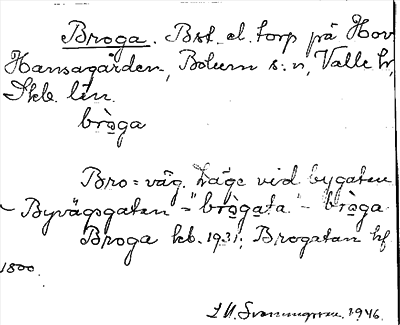 Broga. Bst. el. torp på Hov
Hansagården, Bolum s:n, Valle hd,
Skb. län.
bròga
Bro = väg. Läge vid bygatan
- Byvägsgatan - "brògata" - bròga
Broga kb. 1931; Brogatan kf
1800.
1946.